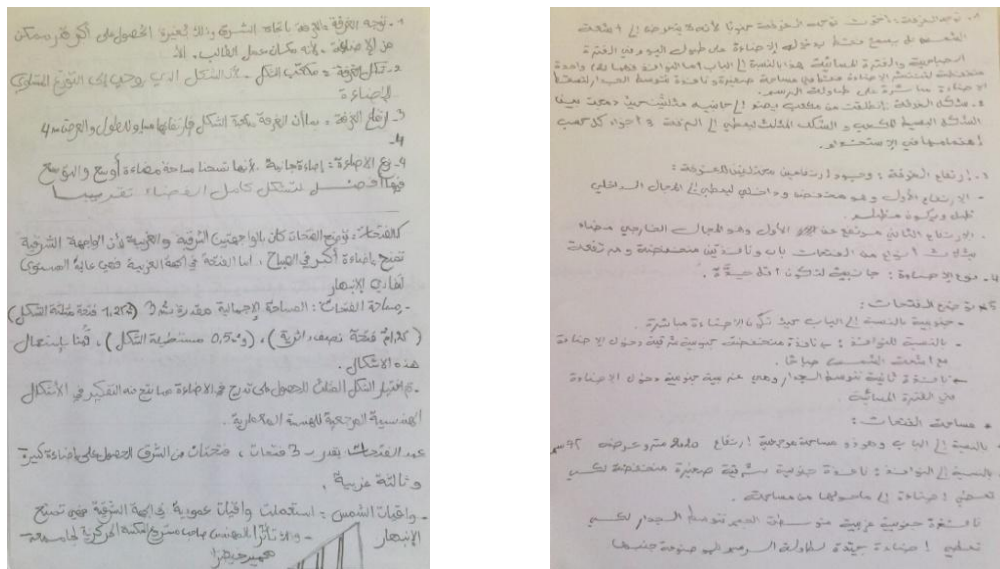 1- توجه الغرفة: موجهة باتجاه الشرق وذلك لغرض الحصول على أكبر قدر ممكن
من الإضاءة، لأنه مكان عمل الطالب.
2- شكل الغرفة: مكعب الشكل، لأن الشكل الذي يوحي إلى التوزيع المتساوي
للإضاءة
3- ارتفاع الغرفة: بما أن الغرفة مكعبة الشكل فارتفاعها مساو للطول والعرض 4م
4-
4- نوع الإضاءة: إضاءة جانبية، لأنها تمنحنا مساحة مضاءة أوسع والتوسع
فيها أفضل لتشكل كامل الفضاء تقريبا
كالفتحات: توضع الفتحات كان بالواجهتين الشرقية والغربية لأن الواجهة الشرقية
تمنح إضاءة أكبر في الصباح، أما الفتحة في الجهة الغربية فهي عالية المستوى
لتفادي الإبهار
- مساحة الفتحات: المساحة الإجمالية مقدرة بـ 3 فتحة مثلثة الشكل)
فتحة نصف دائرية)، (و 0,5 مستطيلة الشكل)، قمنا باستعمال
هذه الأشكال.
- تم اختيار الشكل المثلث للحصول على تدرج في الإضاءة مما نتج عنه التفكير في الأشكال
الهندسية المرجعية للهندسة المعمارية.
عدد الفتحات: يقدر بـ 3 فتحات، فتحتان من الشرق للحصول على إضاءة كبيرة
وثالثة غربية.
- واقيات الشمس: استعملت واقيات عمودية في الجهة الشرقية فهي تمنع
الإبهار - وذلك تأثرا بالمهندس صاحب مشروع المكتبة المركزية لجامعة
1- توجه الغرفة: أخذت توجه الغرفة جنوبا لأنه لا يتعرض إلى أشعة
الشمس بل يسمح فقط بدخول الإضاءة على طول اليوم في الفترة
الصباحية والفترة المسائية هذا بالنسبة إلى الباب أما النوافذ فهما واحدة
منخفضة لتنتشر الإضاءة مساحة صغيرة ونافذة تتوسط الجدار لتعطي
الإضاءة مباشرة على طاولة الرسم.
2- شكل الغرفة: انطلقت من مكعب إلى جانبيه مثلثين حيث دمجت بين
الشكل البسيط المكعب والشكل المثلث ليعطي إلى الغرفة 3 أجزاء كل حسب
في الاستخدام.
3- ارتفاع الغرفة: وجود ارتفاعين مختلفين للغرفة:
- الارتفاع الأول وهو منخفض وداخلي ليعطي إلى المجال الداخلي
ظل ويكون مظلم.
- الارتفاع الثاني مرتفع عن الأول وهو المجال الخارجي مضاء
بثلاث أنواع من الفتحات باب ونافذتين منخفضة ومرتفعة
4- نوع الإضاءة: جانبية لتكون
5- توضع الفتحات:
- جنوبية بالنسبة إلى الباب حيث تكون الإضاءة مباشرة.
- بالنسبة للنوافذ: نافذة منخفضة جنوبية شرقية دخول الإضاءة
مع أشعة الشمس صباحا.
- نافذة ثانية تتوسط الجدار وهي غربية جنوبية دخول الإضاءة
في الفترة المسائية.
* مساحة الفتحات:
بالنسبة إلى الباب وهو ذو مساحة ارتفاع متر وعرضه 92 سم
بالنسبة إلى النوافذ: نافذة جنوبية شرقية صغيرة منخفضة لكي
تعطي إضاءة إلى ما حولها من مساحات.
نافذة جنوبية غربية متوسطة الحجم تتوسط الجدار لكي
تعطي إضاءة جيدة لطاولة الرسم